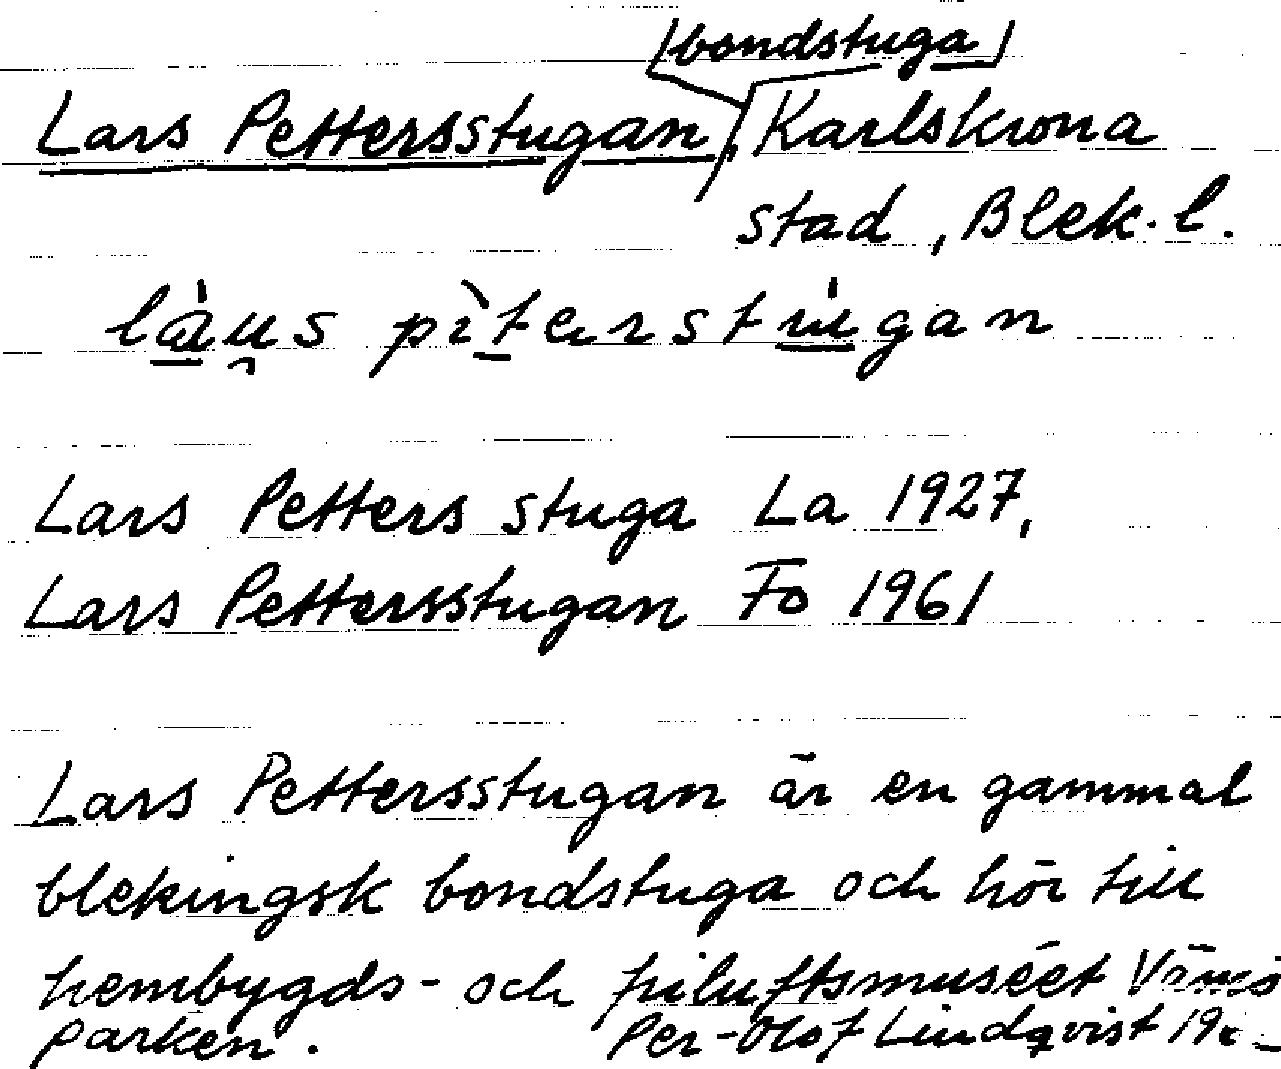 /bondstuga/
Lars Pettersstugan, Karlskrona
stad, Blek. l.
Lars Petters stuga La 1927,
Lars Pettersstugan Fo 1961
Lars Pettersstugan är en gammal
blekingsk bondstuga och hör till
hembygds- och friluftsmuséet Vämö
parken. Per-Olof Lindqvist